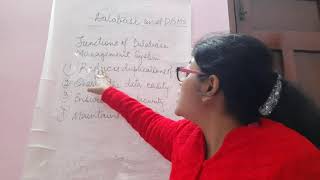 Database and DBMS
Functions of Database
Management System
① duplication of
② data easily
③ security
④ Maintains